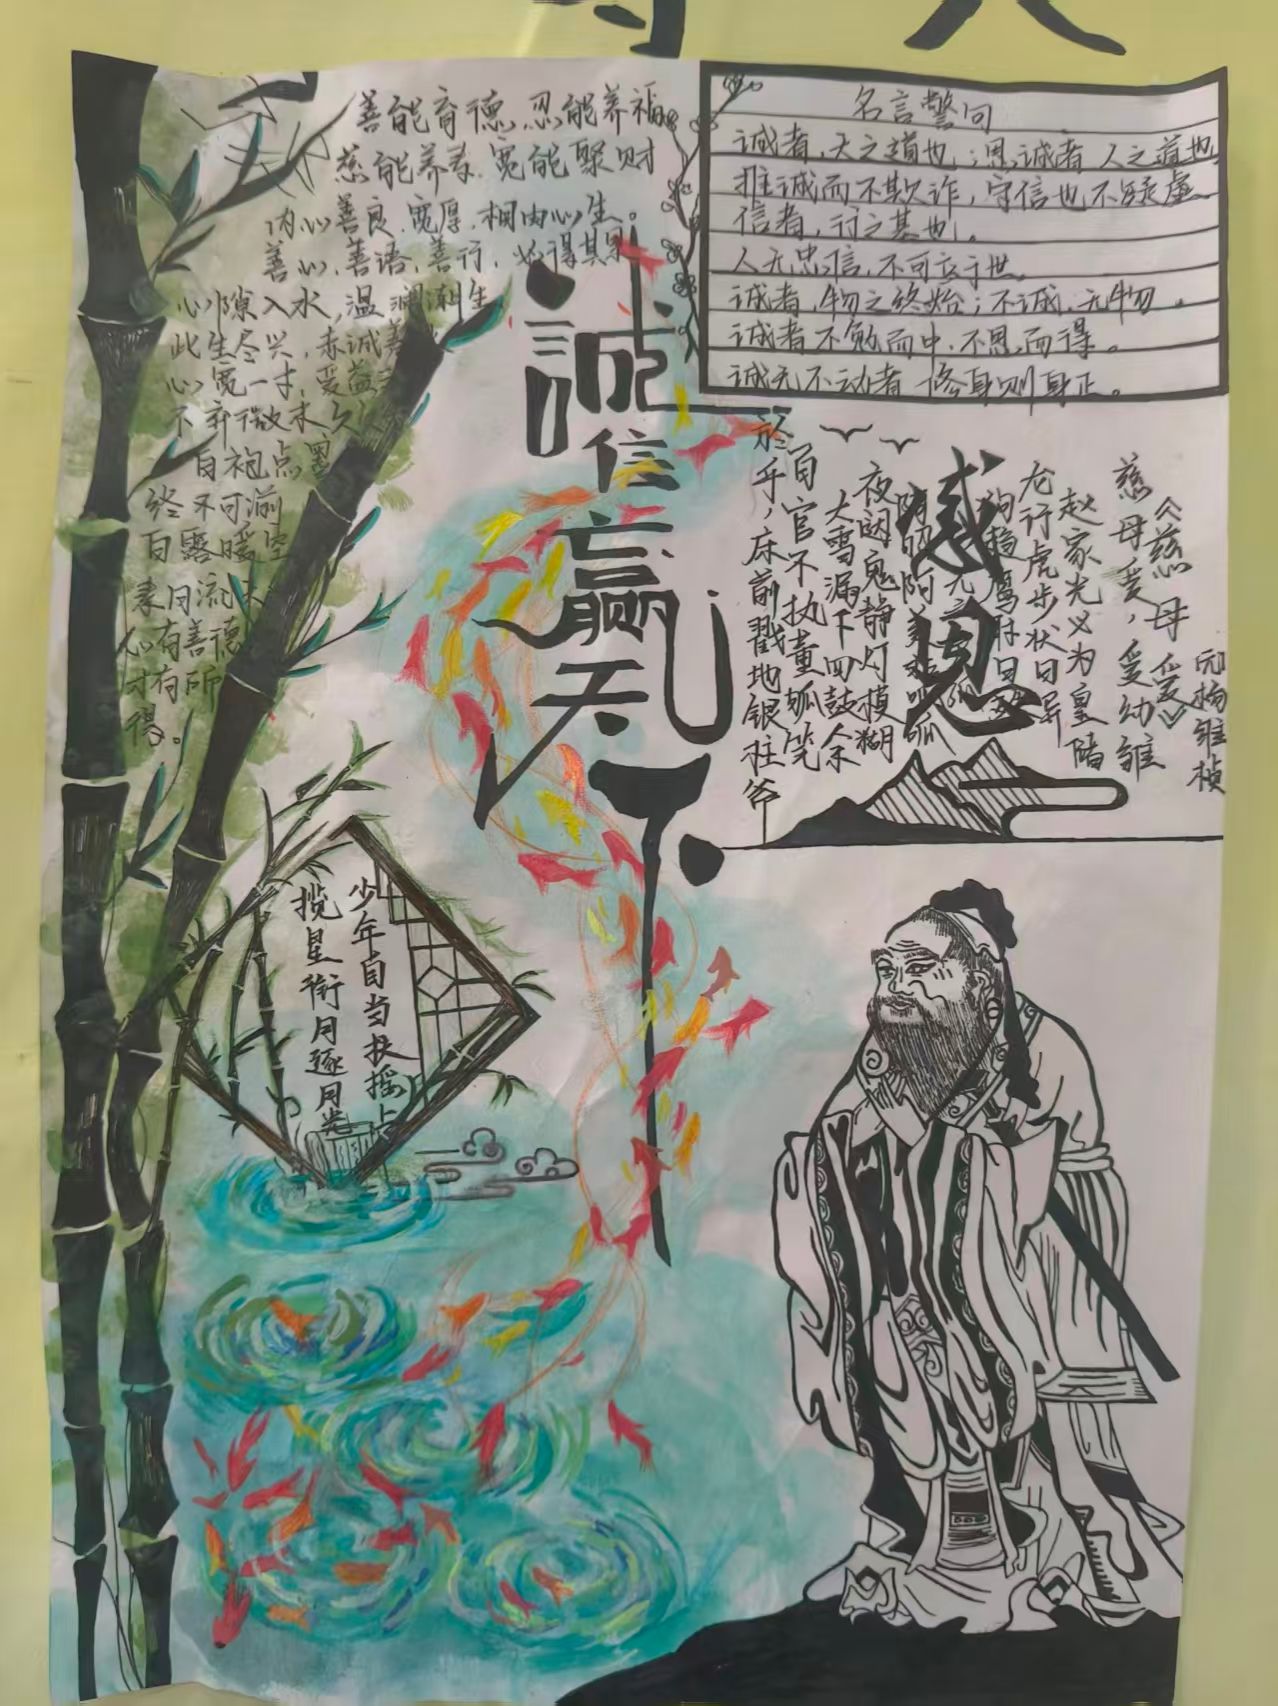 善能育德,忍能养福
慈能养寿,宽能聚财
内心善良,宽厚,相由心生。
善心,善语,善行,必得其果
心隙入水,温澜潮生
此生尽兴,赤诚善
心宽一寸,受益三
不弃微末,久久
白袍点墨
终不可湔
白露暖空
素月流天
心有善德
才有所
得。
名言警句
诚者,天之道也;思诚者 人之道也
推诚而不欺诈,守信也不疑虚
信者,行之基也。
人无忠信,不可立于世。
诚者,物之终始;不诚,无物。
诚者不勉而中,不思而得。
诚无不动者 修身则身正。
誠信赢天下
感恩
《慈母爱》
元 杨维桢
慈母爱,爱幼雏
赵家光义为皇储
龙行虎步状日异
狗趋鹰附日
夜闼鬼静灯模糊
大雪漏下四鼓余
百官不执董狐笔
於乎,床前戳地银柱斧
少年自当扶摇上
揽星衔月逐月光